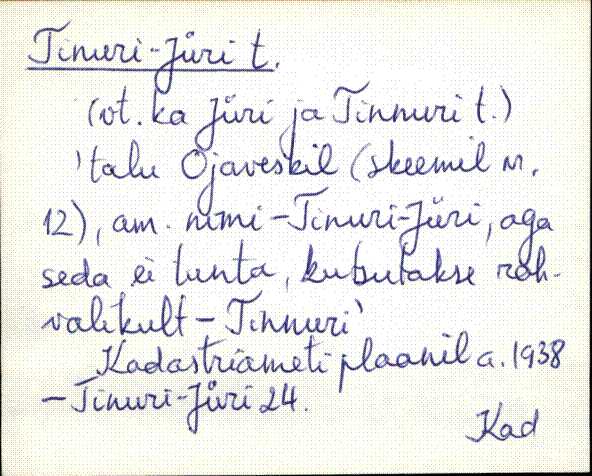 Tinuri-Jüri t.
(vt. ka Jüri ja Tinnuri t.)
'talu Ojaveskil (skeemil nr.
12), am. nimi - Tinuri-Jüri, aga
seda ei tunta, kutsutakse rah-
valikult - Tinnuri'
Kadastriameti plaanil a. 1938
- Tinuri-Jüri 24.
Kad